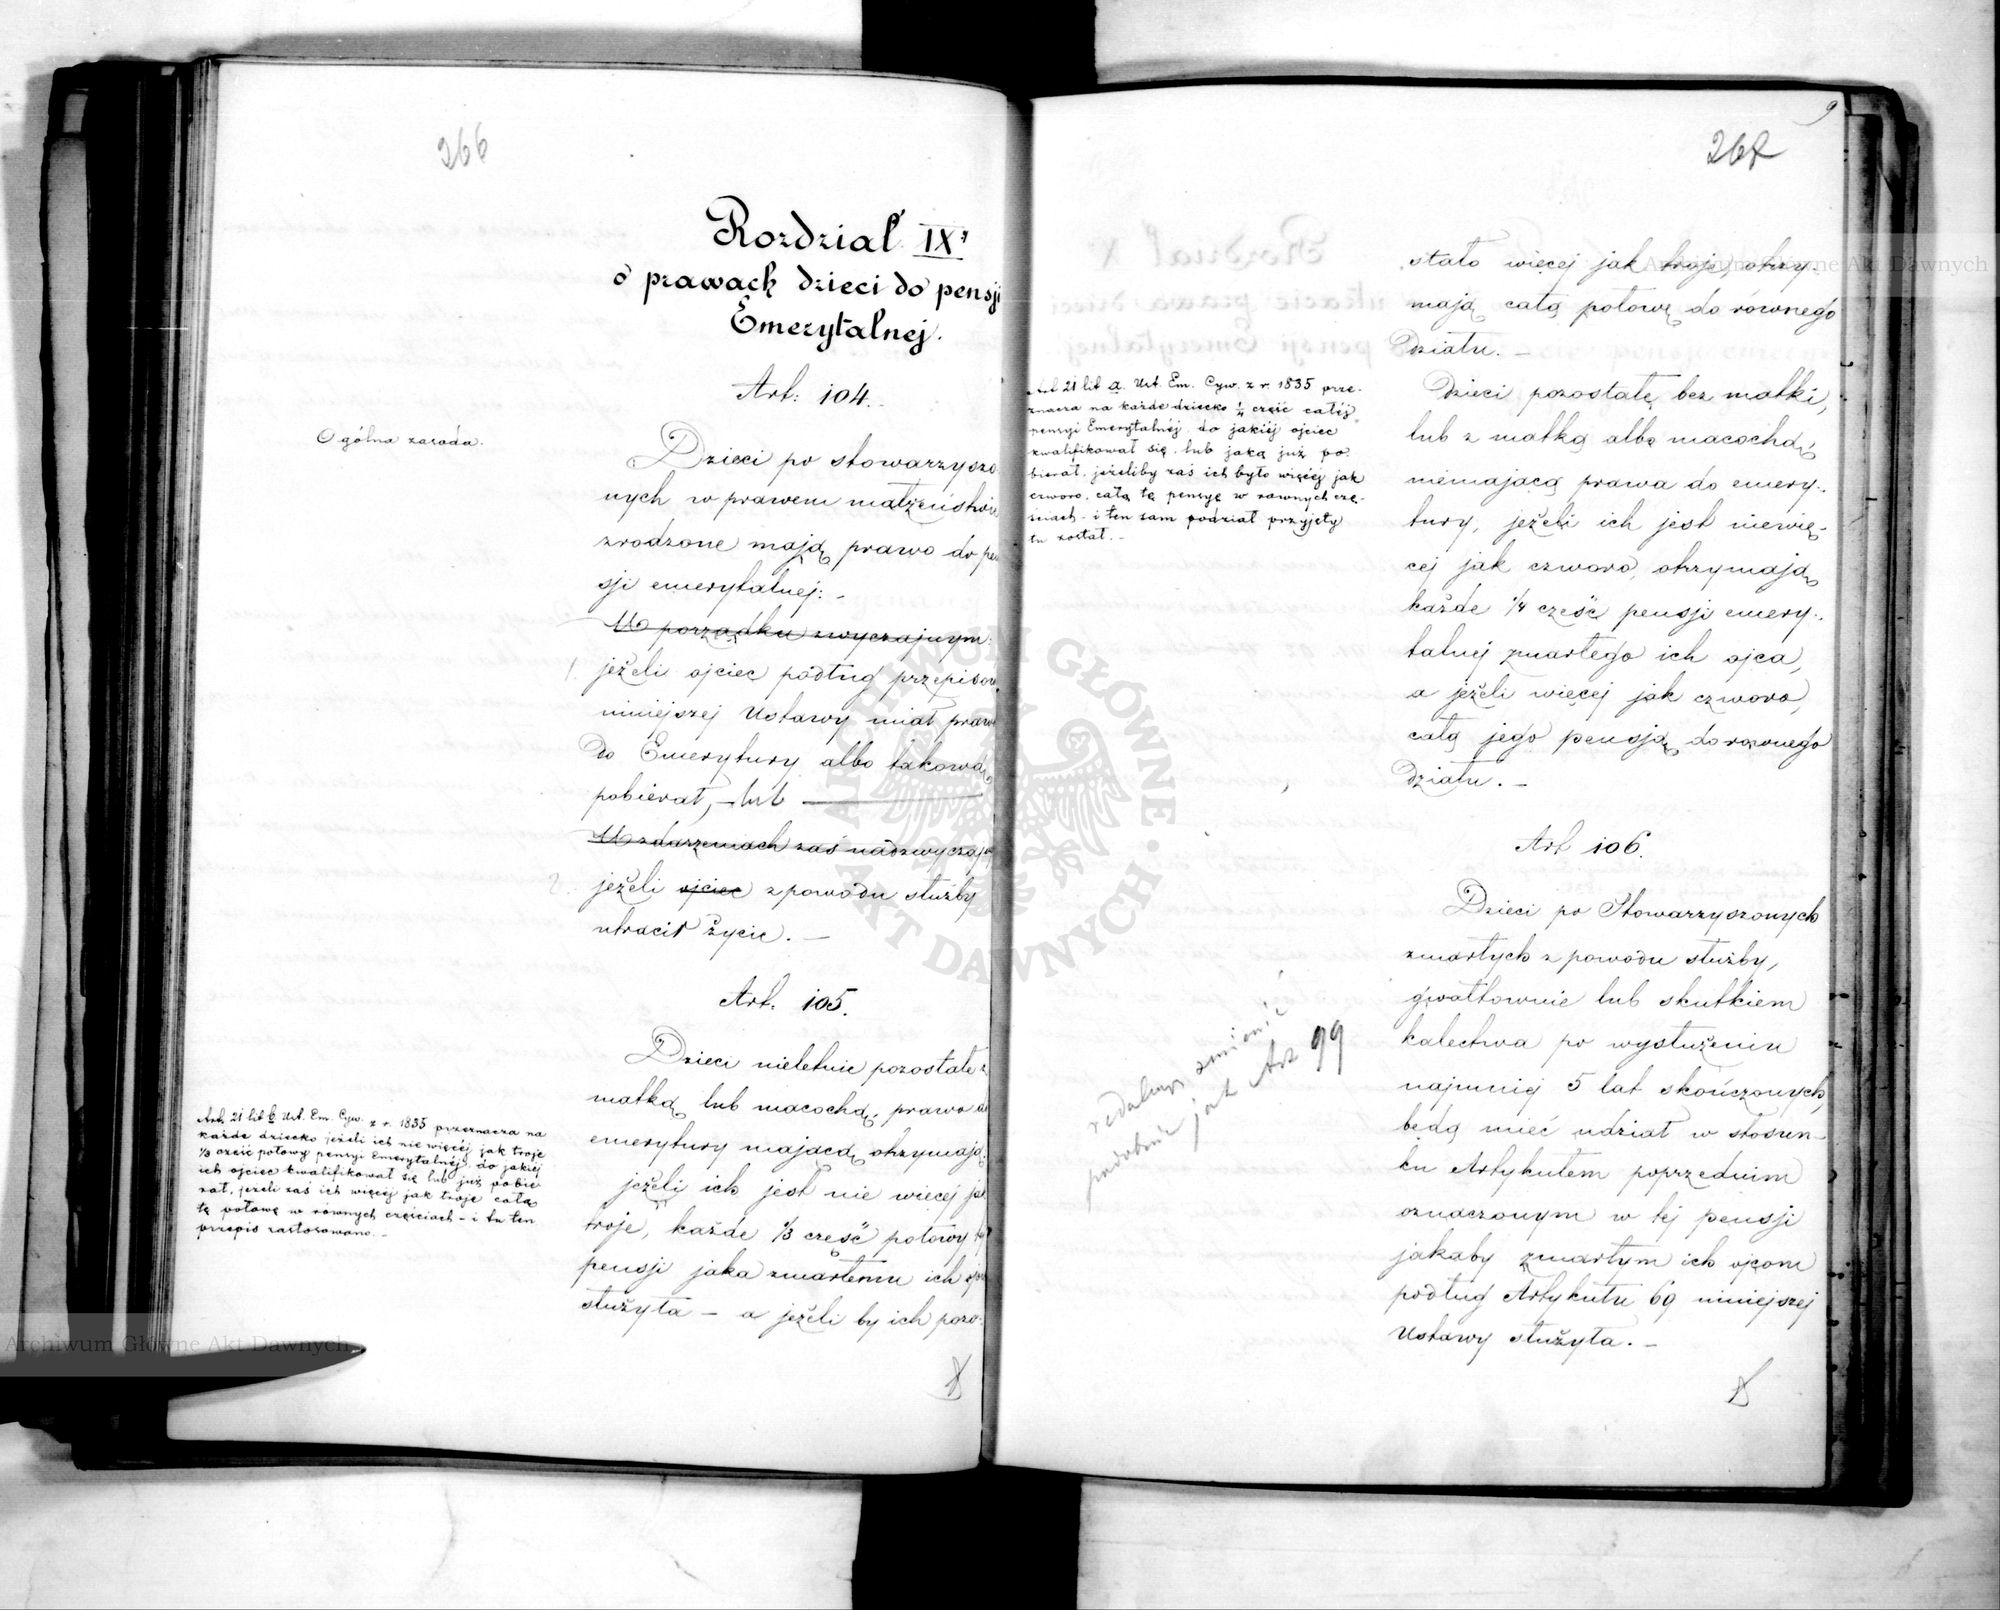 266
Rozdział IX.
o prawach dzieci do pensji
Emerytalnej.
Art: 104.
Ogólna zasada.
Dzieci po stowarzyszo
nych w prawem małżeństwie
zrodzone mają prawo do pen
sji emerytalnej: -
W porządku zwyczajnym:
1. jeżeli ojciec podług przepisów
niniejszej Ustawy miał prawo
do Emerytury albo takową
pobierał, - lub
W zdarzeniach zaś nadzwyczaj
2. jeżeli ojciec z powodu służby
utracił życie. -
Art: 105.
Dzieci nieletnie pozostałe z
matką lub macochą, prawo do
emerytury mającą, otrzymają:
jeżeli ich jest nie więcej jak
troje, każde 1/3 część połowy tej
pensji jaka zmarłemu ich ojcu
służyła - a jeżeli by ich pozo-
Art. 21 lit b Ust. Em. Cyw. z r. 1835 przeznacza na
każde dziecko jeżeli ich nie więcéj jak troje
1/3 część połowy pensyi Emerytalnéj do jakiéj
ich ojciec kwalifikował się lub już pobie
rał, jeżeli zaś ich więcéj jak troje całą
tę połowę w równych częściach - i tu ten
przepis zastosowano. -
9
267
stało więcej jak troje, otrzy-
mają całą połowę do równego
działu. -
Art 21 lit a. Ust. Em. Cyw. z r. 1835 prze-
znacza na każde dziecko 1/4 część całéj
pensyi Emerytalnéj do jakiéj ojciec
kwalifikował się, lub jaką już po-
bierał, jeżeliby zaś ich było więcéj jak
czworo, całą tę pensyę w równych czę-
ściach - i ten sam podział przyjęty
tu został. -
Dzieci pozostałe bez matki,
lub z matką albo macochą,
niemającą prawa do emery-
tury, jeżeli ich jest niewię-
cej jak czworo, otrzymają
każde 1/4 część pensji emery-
talnej zmarłego ich ojca,
a jeżeli więcej jak czworo,
całą jego pensją do równego
działu. -
Art 106.
Dzieci po Stowarzyszonych
zmarłych z powodu służby,
gwałtownie lub skutkiem
kalectwa po wysłużeniu
najmniej 5 lat skończonych,
będą mieć udział w stosun-
ku Artykułem poprzednim
oznaczonym w tej pensji
jakaby zmarłym ich ojcom
podług Artykułu 69 niniejszej
Ustawy służyła. -
redakcję zmienić
podobnie jak Art 99
ARCHIWUM GŁÓWNE AKT DAWNYCH
Archiwum Główne Akt Dawnych
Archiwum Główne Akt Dawnych